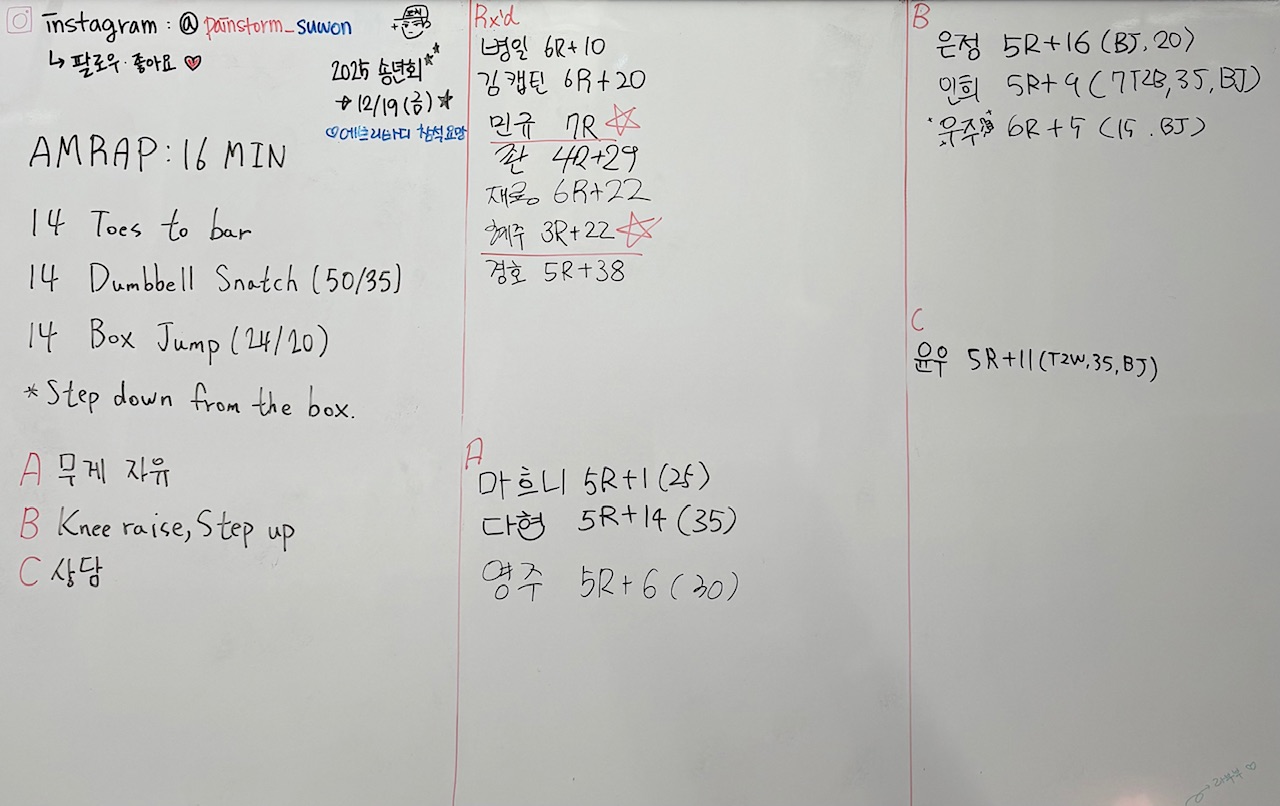 instagram : @painstorm_suwon
↳ 팔로우·좋아요 ♥
2025 송년회
→ 12/19(금)
♡에브리바디 참석요망
AMRAP : 16 MIN
14 Toes to bar
14 Dumbbell Snatch (50/35)
14 Box Jump (24/20)
*Step down from the box.
A 무게 자유
B Knee raise, Step up
C 상담
Rx'd
병일 6R+10
김캡틴 6R+20
민규 7R ☆
존 4R+29
재룡 6R+22
혜주 3R+22 ☆
경호 5R+38
A
마흐니 5R+1 (25)
다현 5R+14 (35)
영주 5R+6 (30)
B
은정 5R+16 (BJ, 20)
인희 5R+9 (7T2B, 35, BJ)
우주 6R+5 (15. BJ)
C
윤우 5R+11 (T2W, 35, BJ)